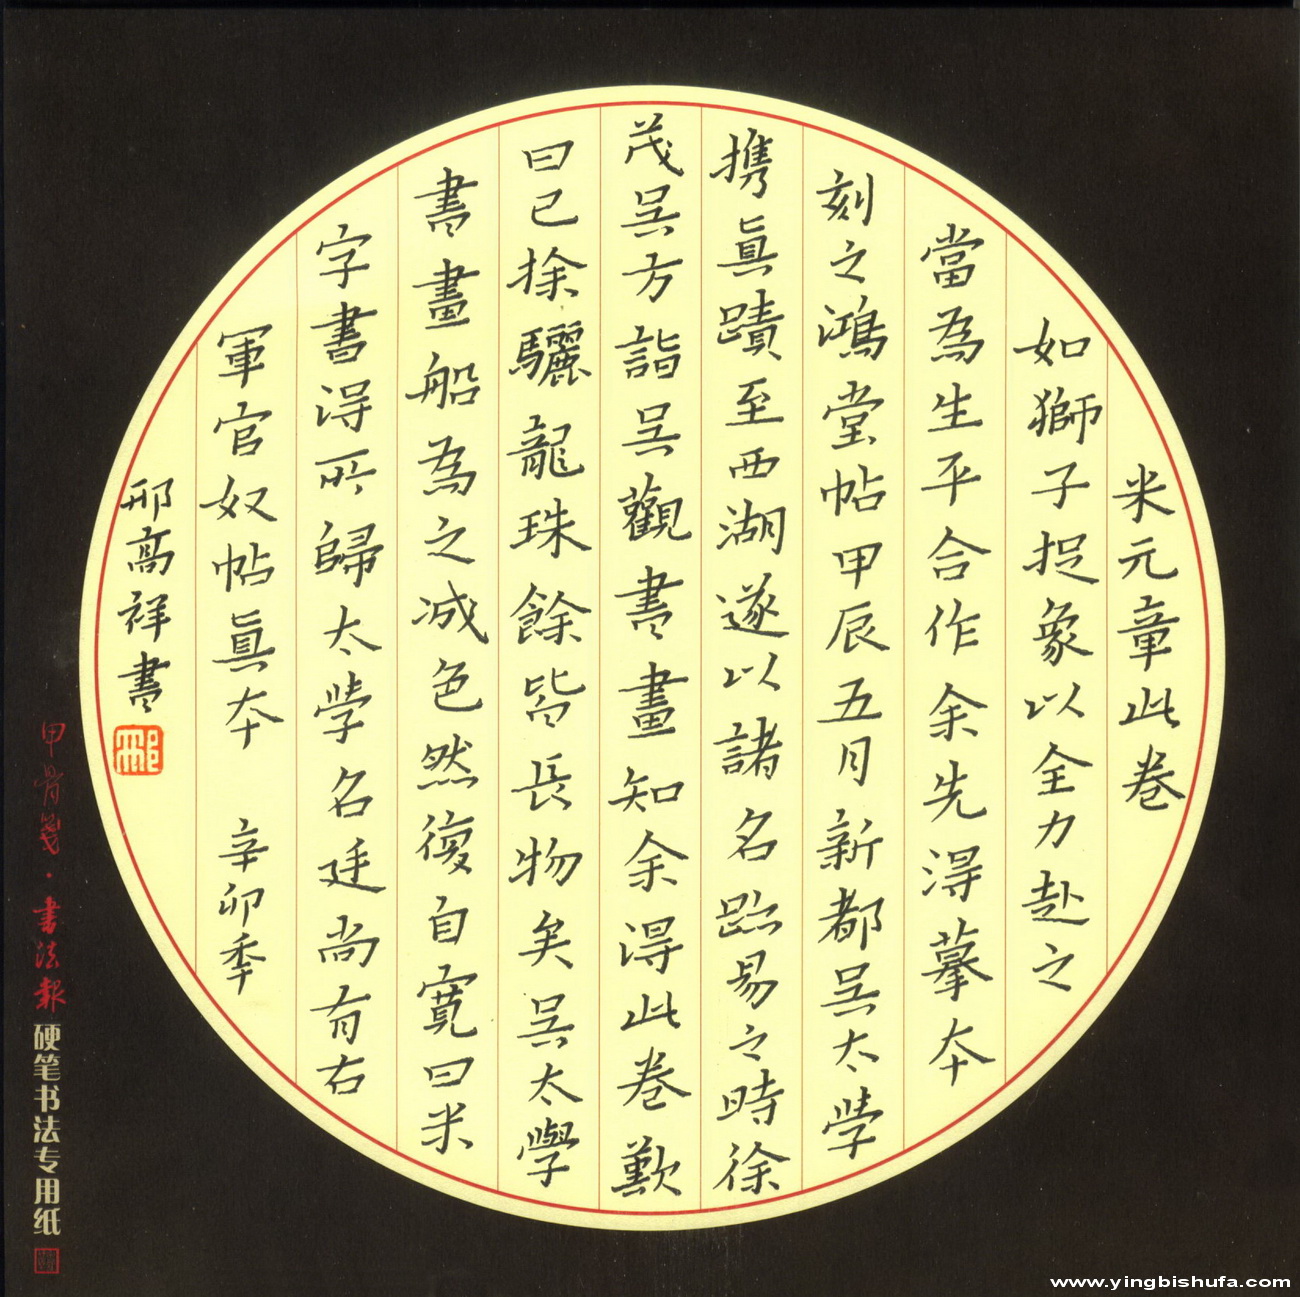 米元章此卷
如獅子捉象以全力赴之
當為生平合作余先淂摹本
刻之鴻堂帖甲辰五月新都吴太學
携眞蹟至西湖遂以諸名跡易之時徐
茂吴方詣吴觀書畫知余淂此卷歎
曰已探驪龍珠餘皆長物矣吴太學
書畫船為之减色然復自寬曰米
字書淂所歸太學名廷尚有右
軍官奴帖眞本 辛卯季
邢高祥書
邢
甲骨笺·書法報
硬笔书法专用纸
www.yingbishufa.com